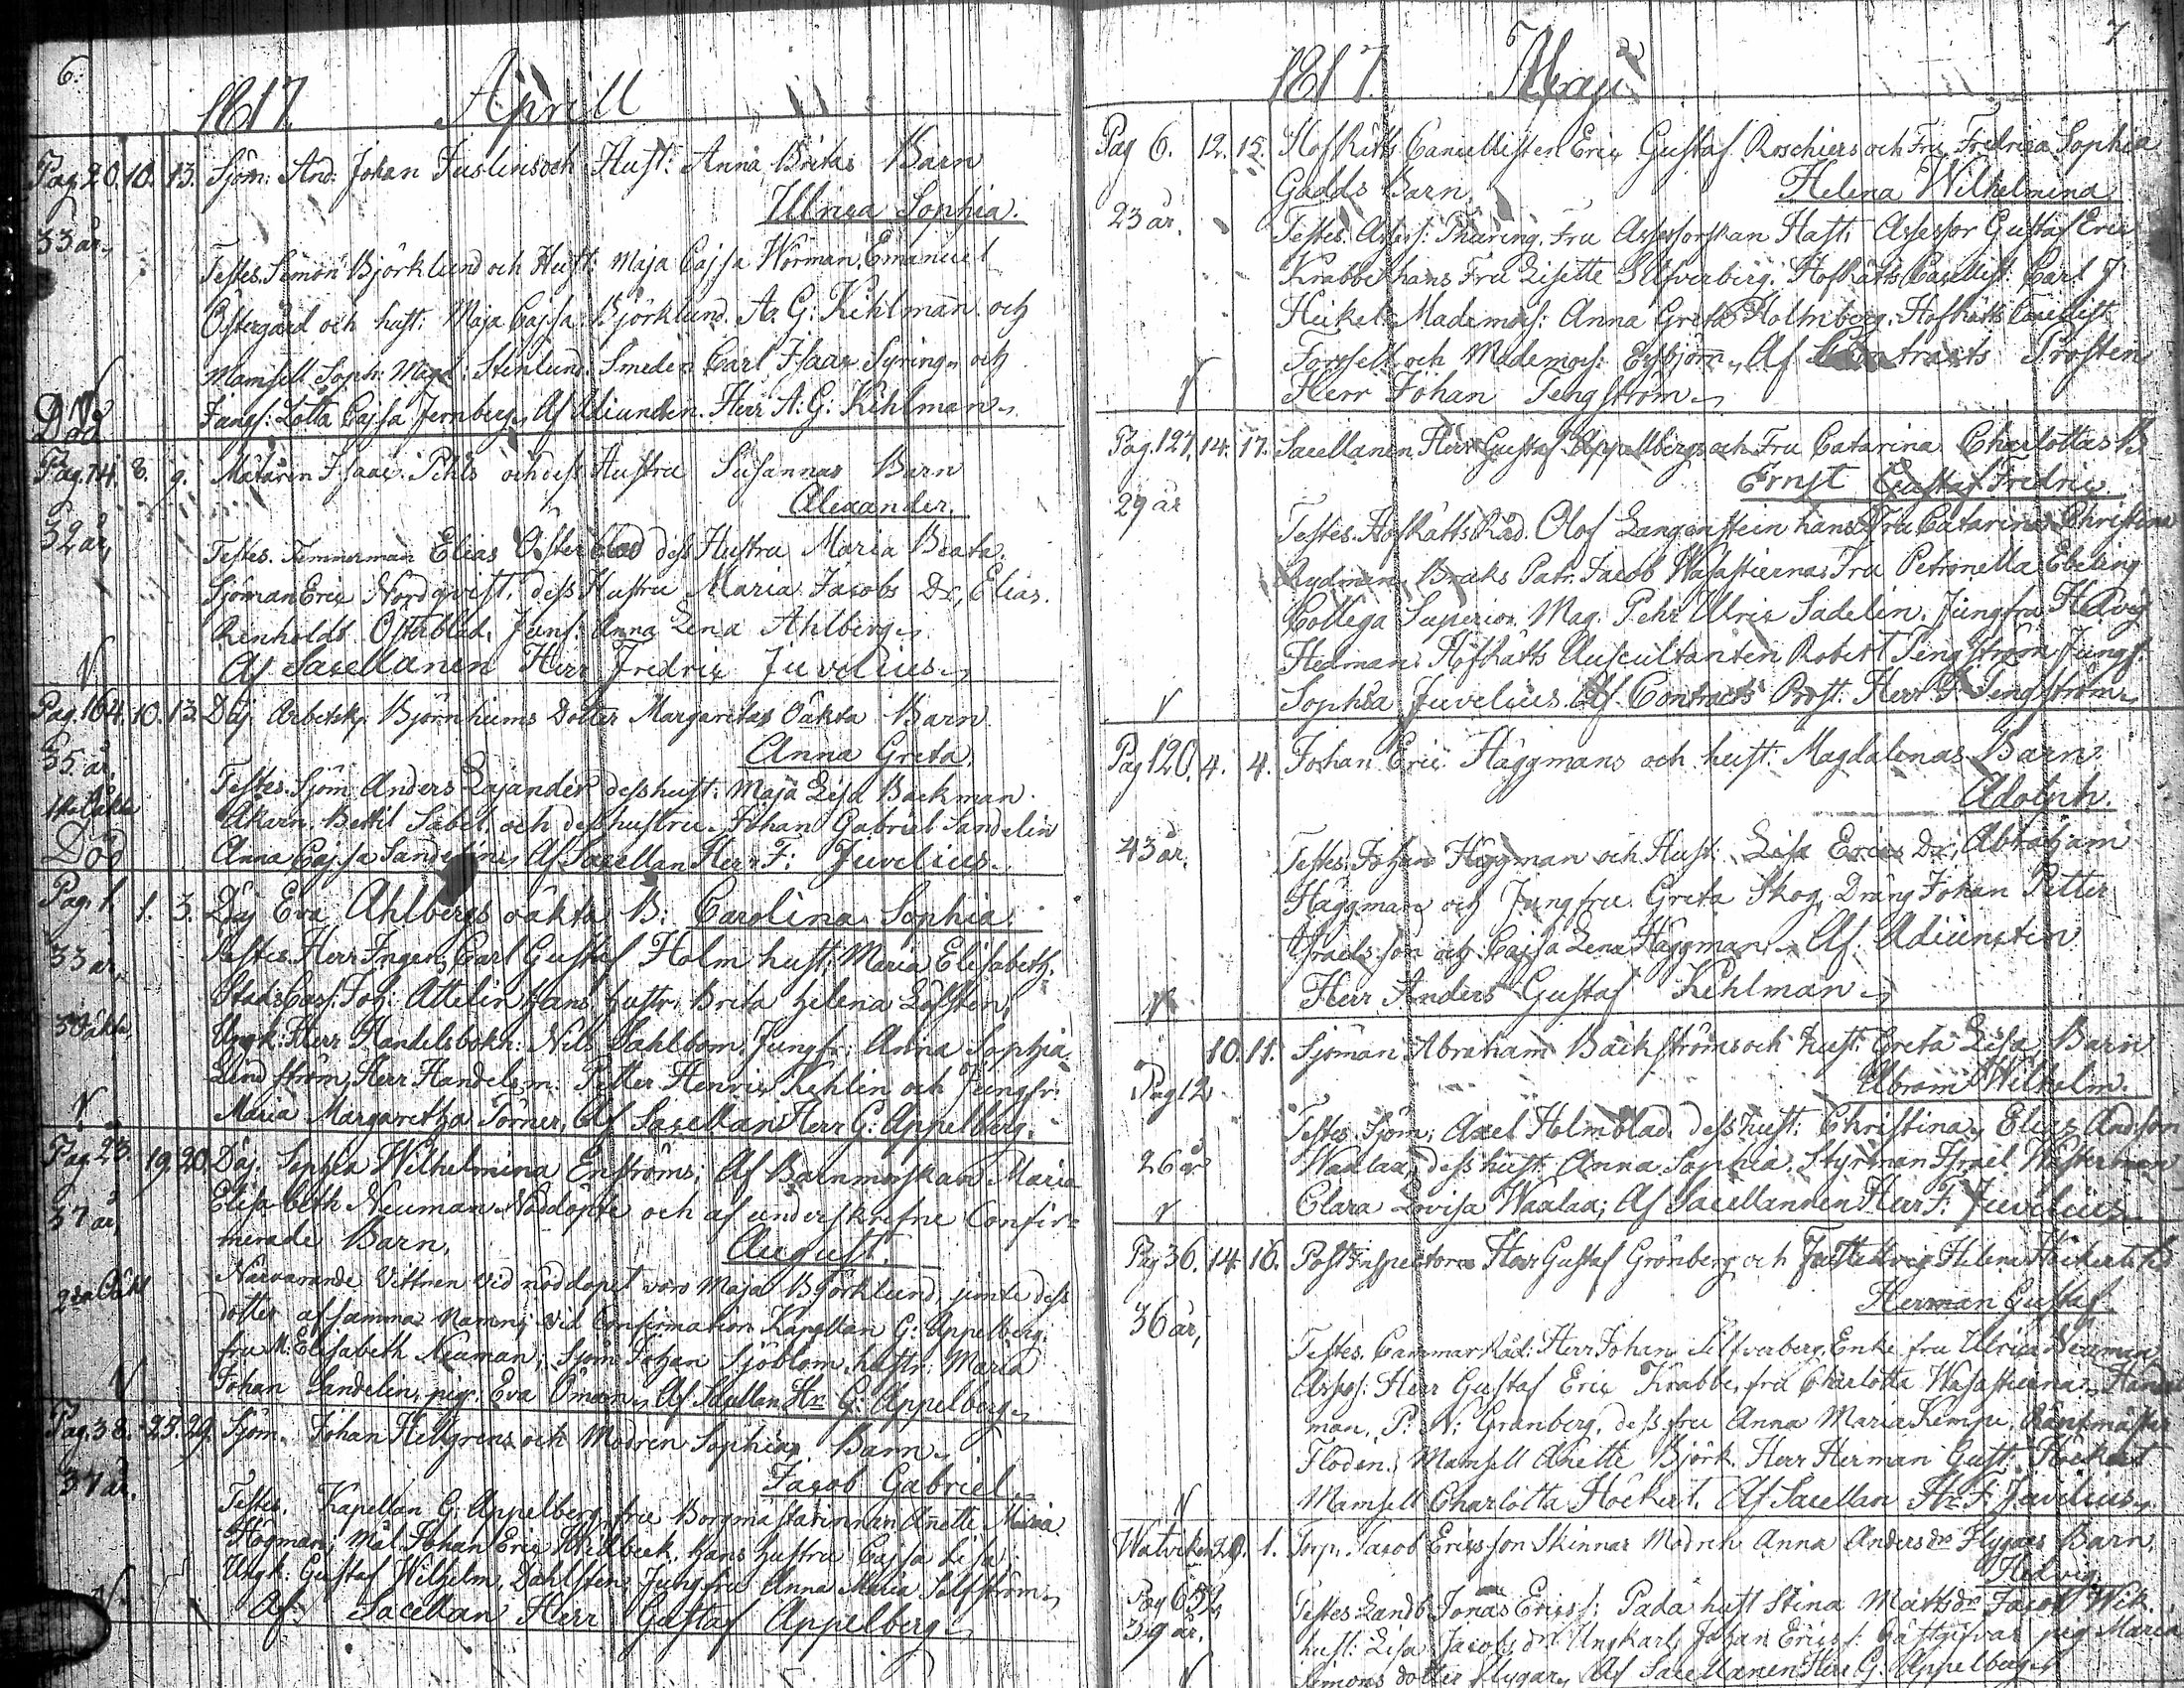 6.
1817. Aprill
Pag. 20. 10. 13. Sjöm: And: Johan Juslins och Hust: Anna Britas Barn
Ulrica Sophia.
33 år,
Testes. Simon Björklund och Hust: Maja Cajsa Wörman, Emanuel
Östergård och hust: Maja Cajsa Björklund. A. G: Kihlman och
Mamsell Soph: Magd: Stenlund. Smeden Carl Isaac Syring, och
Jungf: Lotta Cajsa Jernberg, Af Adiuncten Herr A: G: Kihlman,
Död
Pag. 74. 8. 9. Mätaren Isaac Pihls och dess Hustru Susannas Barn
Alexander.
32 år,
Testes. Timmerman Elias Österblad dess Hustru Maria Beata.
Sjöman Eric Nordqvist, dess Hustru Maria Jacobs Dr, Elias
Renholdt Österblad, Junf: Anna Lena Ahlberg,
Af Sacellanen Herr Fredric Juvelius,
Pag. 164. 10. 13. Däj Arbetsk: Björnhiums Dotter Margaretas Oäkta Barn
Anna Greta.
35 år,
Testes. Sjöm Anders Lajander dess hust: Maja Lisa Backman
Åkarn Bettil Sabel och dess hustru. Johan Gabriel Sandelin
Anna Cajsa Sandelin, Af Sacellan Herr F: Juvelius.
1te Oäkta
Död
Pag. 1 1. 3. Däj Eva Ahlbergs oäkta B: Carolina Sophia.
33 år,
Testes. Herr Ingen: Carl Gustaf Holm hust: Maria Elisabeth.
Stads Cass: Joh: Attelin hans hustr: Brita Helena Löfsten,
3 Oäkta,
Ungk: Herr Handelsbokh: Nils Dahlbom. Jungfr: Anna Sophia
Lindström, Herr Handelsm: Petter Henric Kehlin och Jungfr:
Maria Margaretha Törner, Af Sacellan Herr G: Appelberg.
Pag 23. 19. 20. Däj. Sophia Wilhelmina Enströms; Af Barnmorskan Maria
37 år,
Elisabeth Neuman Nöddöpte och af underskrefne Confir-
merade Barn, August.
2dra Oäkt
Närvarande Vittnen vid nöddopet voro Maja Björklund, jemte dess
dotter af samma Namn; vid Confirmation Kapellan G: Appelberg.
fru M: Elisabeth Neuman; Sjöm Johan Sjöblom, hustr: Maria
Johan Sandelin, pig: Eva Öman, Af Sacellan Hr: G: Appelberg,
Pag. 38. 25. 29. Sjöm. Johan Hellgrens och Modren Sophias Barn,
Jacob Gabriel.
37 år.
Testes. Kapellan G: Appelberg, fru Borgmästarinnan Anette Maria
Högman; Mål. Johan Eric Widbeck, hans hustru Cajsa Lisa
Ungk: Gustaf Wilhelm Dahlsten, Jungfru Anna Maria Selfström,
Af Sacellan Herr Gustaf Appelberg,
7
1817. Maji
Pag 6. 12. 15. HofRätts Cancellisten Eric Gustaf Roschiers och Fru Fredrica Sophia
Gadds Barn Helena Wilhelmina
23 år.
Testes. Assess: Thuring, Fru Assessorskan Hast, Assessor Gustaf Eric
Krabbe hans Fru Lisette Silfverberg. HofRätts Cancellist: Carl J
Heikel. Mademois: Anna Greta Holmberg. HofRätts Cancellist
Forssell och Mademois: Essbjörn, Af Contracts Prosten
Herr Johan Tengström,
Pag. 127. 14. 17. Sacellanen Herr Gustaf Appelbergs och Fru Catarina Charlottas B.
Ernst Gustaf Fredric.
29 år
Testes. HofRätts Råd. Olof Langenstein hans Fru Catarina Christina
Rydman, Bruks Patr. Jacob Wasastierna, Fru Petronella Ebeling
Collega Superior Mag. Pehr Ulric Sadelin. Jungfru Hedvig
Hedman. HofRätts Auscultanten Robert Tengström Jungf.
Sophia Juvelius. Af Contracts Prost. Herr J. Tengström,
Pag 120. 4. 4. Johan Eric Häggmans och hust: Magdalenas Barn.
Adolph.
43 år.
Testes. Johan Häggman och Hust: Lisa Erics Dr, Abraham
Häggman och Jungfru Greta Skog, Dräng Johan Petter
Israelsson och Cajsa Lena Häggman, Af Adiuncten
Herr Anders Gustaf Kihlman,
10. 11. Sjöman Abraham Backströms och hust: Greta Lisa Barn
Pag 12 Abram Wilhelm.
Testes. Sjöm: Axel Holmblad. dess hust: Christina, Elias Andsson
26 år
Waalaa, dess hust: Anna Sophia. Styrman Israel Wästerman
Clara Lovisa Waalaa; Af Sacellannen Herr F: Juvelius,
Pag 36. 14. 16. Post Inspectoren Herr Gustaf Grönberg och Hedvig Helena Höckerts
Herman Gustaf.
36 år,
Testes. Cammar Råd: Herr Johan Silfverberg, Enke fru Ulrica Neuman,
Assess: Herr Gustaf Eric Krabbe, fru Charlotta Wasastierna, Handl
man, P: N: Granberg, dess fru Anna Maria Kempe, Räntmäster
Floden. Mamsell Anette Björk. Herr Herman Gust: Höckert
Mamsell Charlotta Höckert, Af Sacellan Hr F: Juvelius,
Watviken 29. 1. Torp. Jacob Ericsson Skinnar Modren Anna Andersdr Flygars Barn,
Hedvig.
Pag 652
39 år.
Testes Landb Jonas Ericss: Pada hust Stina Mattsdr Jacob Wik.
hust: Lisa Jacobsdr Ungkarl Johan Ericss: Gästgifvar pig Maria
Simons dotter flygar, Af Sacellanen Herr G: Appelberg,